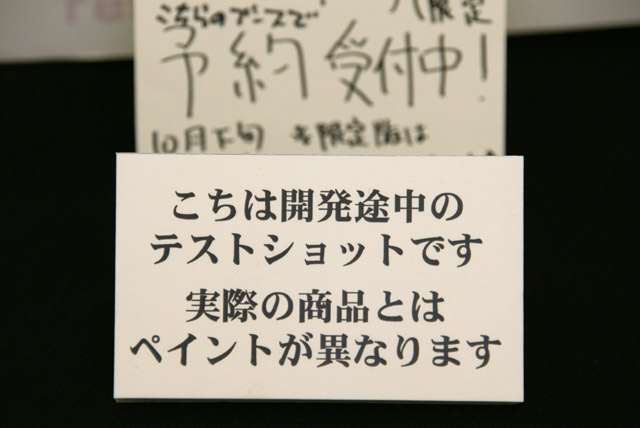 こちらのブースで
限定
予約受付中!
10月下旬 ※限定版は
こちは開発途中の
テストショットです
実際の商品とは
ペイントが異なります